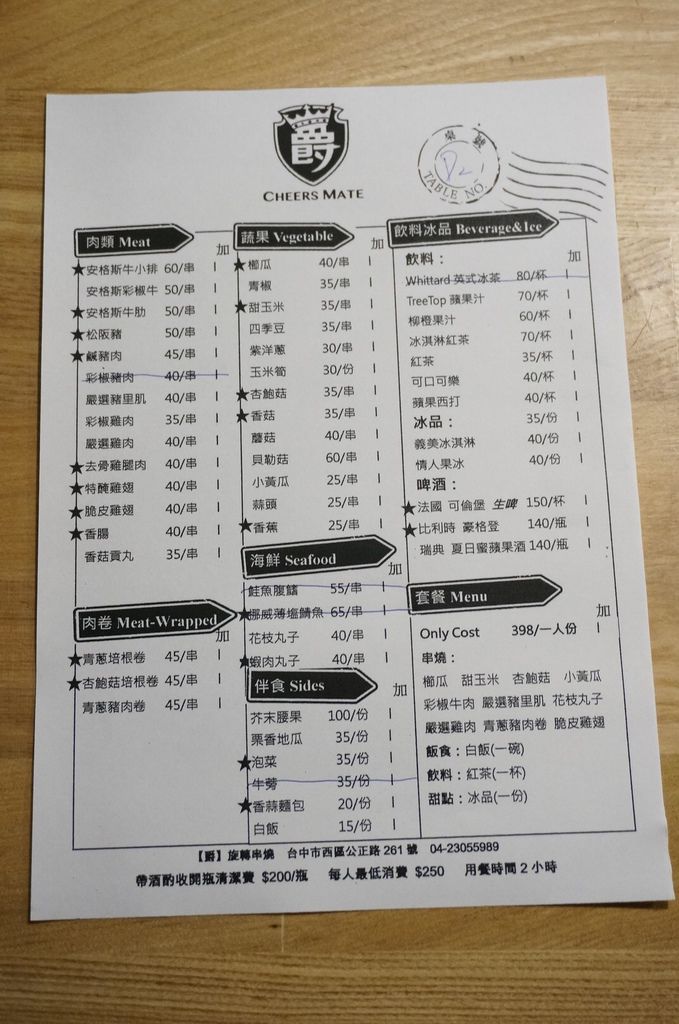 爵
CHEERS MATE
桌號
TABLE NO.
肉類 Meat
加
★安格斯牛小排 60/串
安格斯彩椒牛 50/串
★安格斯牛肋 50/串
★松阪豬 50/串
★鹹豬肉 45/串
彩椒豬肉 40/串
嚴選豬里肌 40/串
彩椒雞肉 35/串
嚴選雞肉 40/串
★去骨雞腿肉 40/串
★特醃雞翅 40/串
★脆皮雞翅 40/串
★香腸 40/串
香菇貢丸 35/串
肉卷 Meat-Wrapped
加
★青蔥培根卷 45/串
★杏鮑菇培根卷 45/串
青蔥豬肉卷 45/串
蔬果 Vegetable
加
★櫛瓜 40/串
青椒 35/串
★甜玉米 35/串
四季豆 35/串
紫洋蔥 30/串
玉米筍 30/份
★杏鮑菇 35/串
★香菇 35/串
蘑菇 40/串
貝勒菇 60/串
小黃瓜 25/串
蒜頭 25/串
★香蕉 25/串
海鮮 Seafood
加
鮭魚腹鰭 55/串
★挪威薄塩鯖魚 65/串
花枝丸子 40/串
★蝦肉丸子 40/串
伴食 Sides
加
芥末腰果 100/份
栗香地瓜 35/份
★泡菜 35/份
牛蒡 35/份
★香蒜麵包 20/份
白飯 15/份
飲料冰品 Beverage&Ice
加
飲料：
Whittard 英式冰茶 80/杯
TreeTop 蘋果汁 70/杯
柳橙果汁 60/杯
冰淇淋紅茶 70/杯
紅茶 35/杯
可口可樂 40/杯
蘋果西打 40/杯
冰品： 35/份
義美冰淇淋 40/份
情人果冰 40/份
啤酒：
★法國 可倫堡 生啤 150/杯
★比利時 豪格登 140/瓶
瑞典 夏日蜜蘋果酒 140/瓶
套餐 Menu
加
Only Cost 398/一人份
串燒：
櫛瓜 甜玉米 杏鮑菇 小黃瓜
彩椒牛肉 嚴選豬里肌 花枝丸子
嚴選雞肉 青蔥豬肉卷 脆皮雞翅
飯食：白飯(一碗)
飲料：紅茶(一杯)
甜點：冰品(一份)
【爵】旋轉串燒 台中市西區公正路 261 號 04-23055989
帶酒酌收開瓶清潔費 $200/瓶 每人最低消費 $250 用餐時間 2 小時